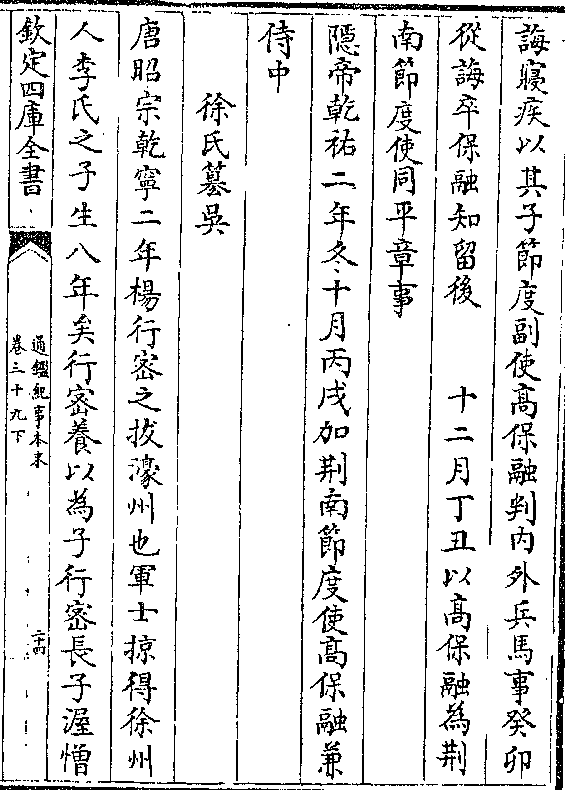 誨寢疾以其子節度副使髙保融判内外兵馬事癸卯
從誨卒保融知留後　十二月丁丑以髙保融為荆
南節度使同平章事
隱帝乾祐二年冬十月丙戌加荆南節度使髙保融兼
侍中
徐氏簒吳
唐昭宗乾寧二年楊行密之拔濠州也軍士掠得徐州
人李氏之子生八年矣行密養以為子行密長子渥憎
欽定四庫全書
通鑑紀事本末
卷三十九下
二十四